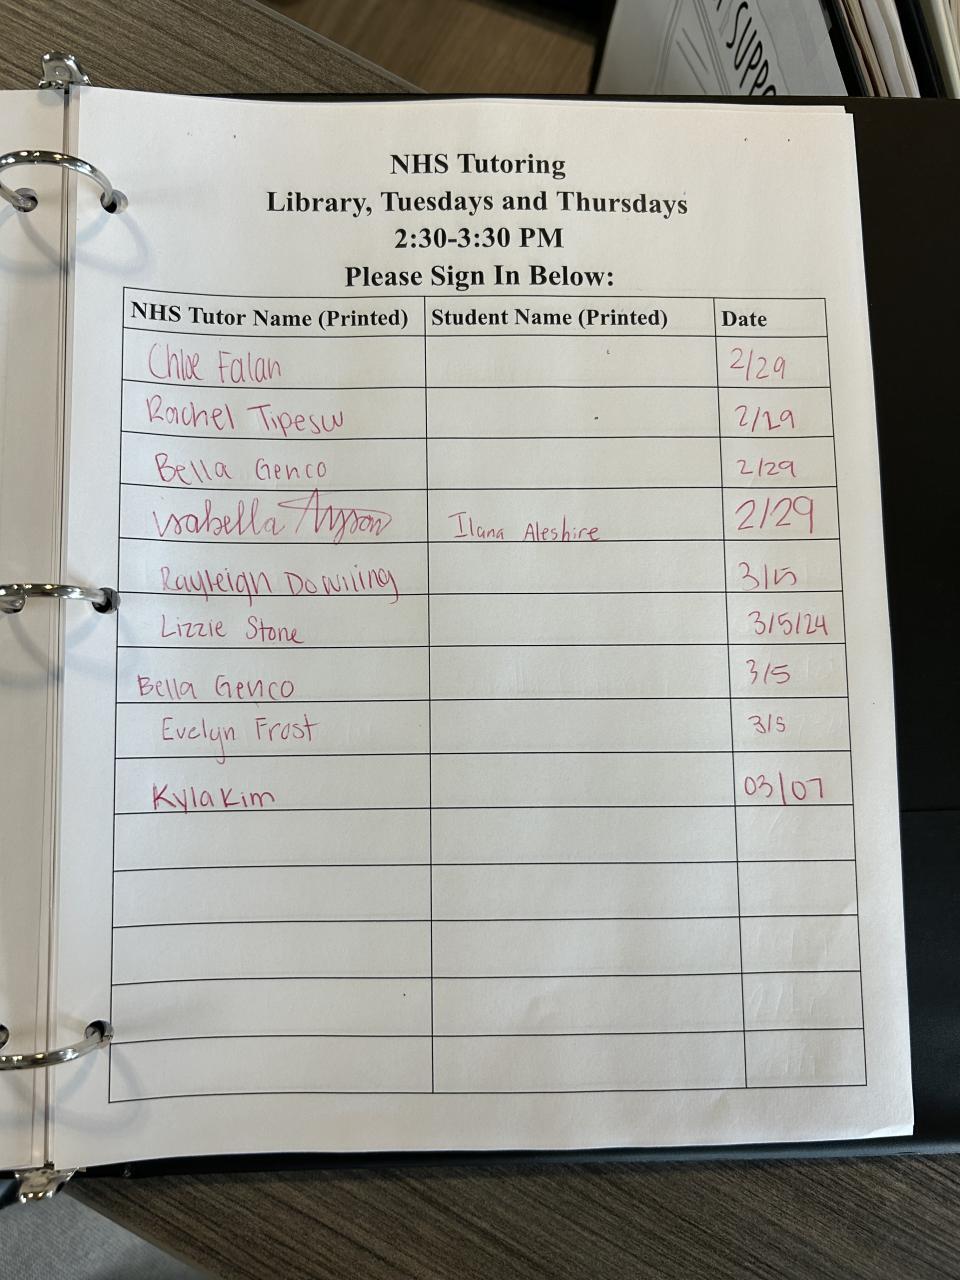 SUPPO
NHS Tutoring
Library, Tuesdays and Thursdays
2:30-3:30 PM
Please Sign In Below:
NHS Tutor Name (Printed) Student Name (Printed) Date
Chloe Falan 2/29
Rachel Tipesw 2/29
Bella Genco 2/29
Isabella Ilana Aleshire 2/29
Rayleigh Dowling 3/5
Lizzie Stone 3/5/24
Bella Genco 3/5
Evelyn Frost 3/5
Kyla Kim 03/07